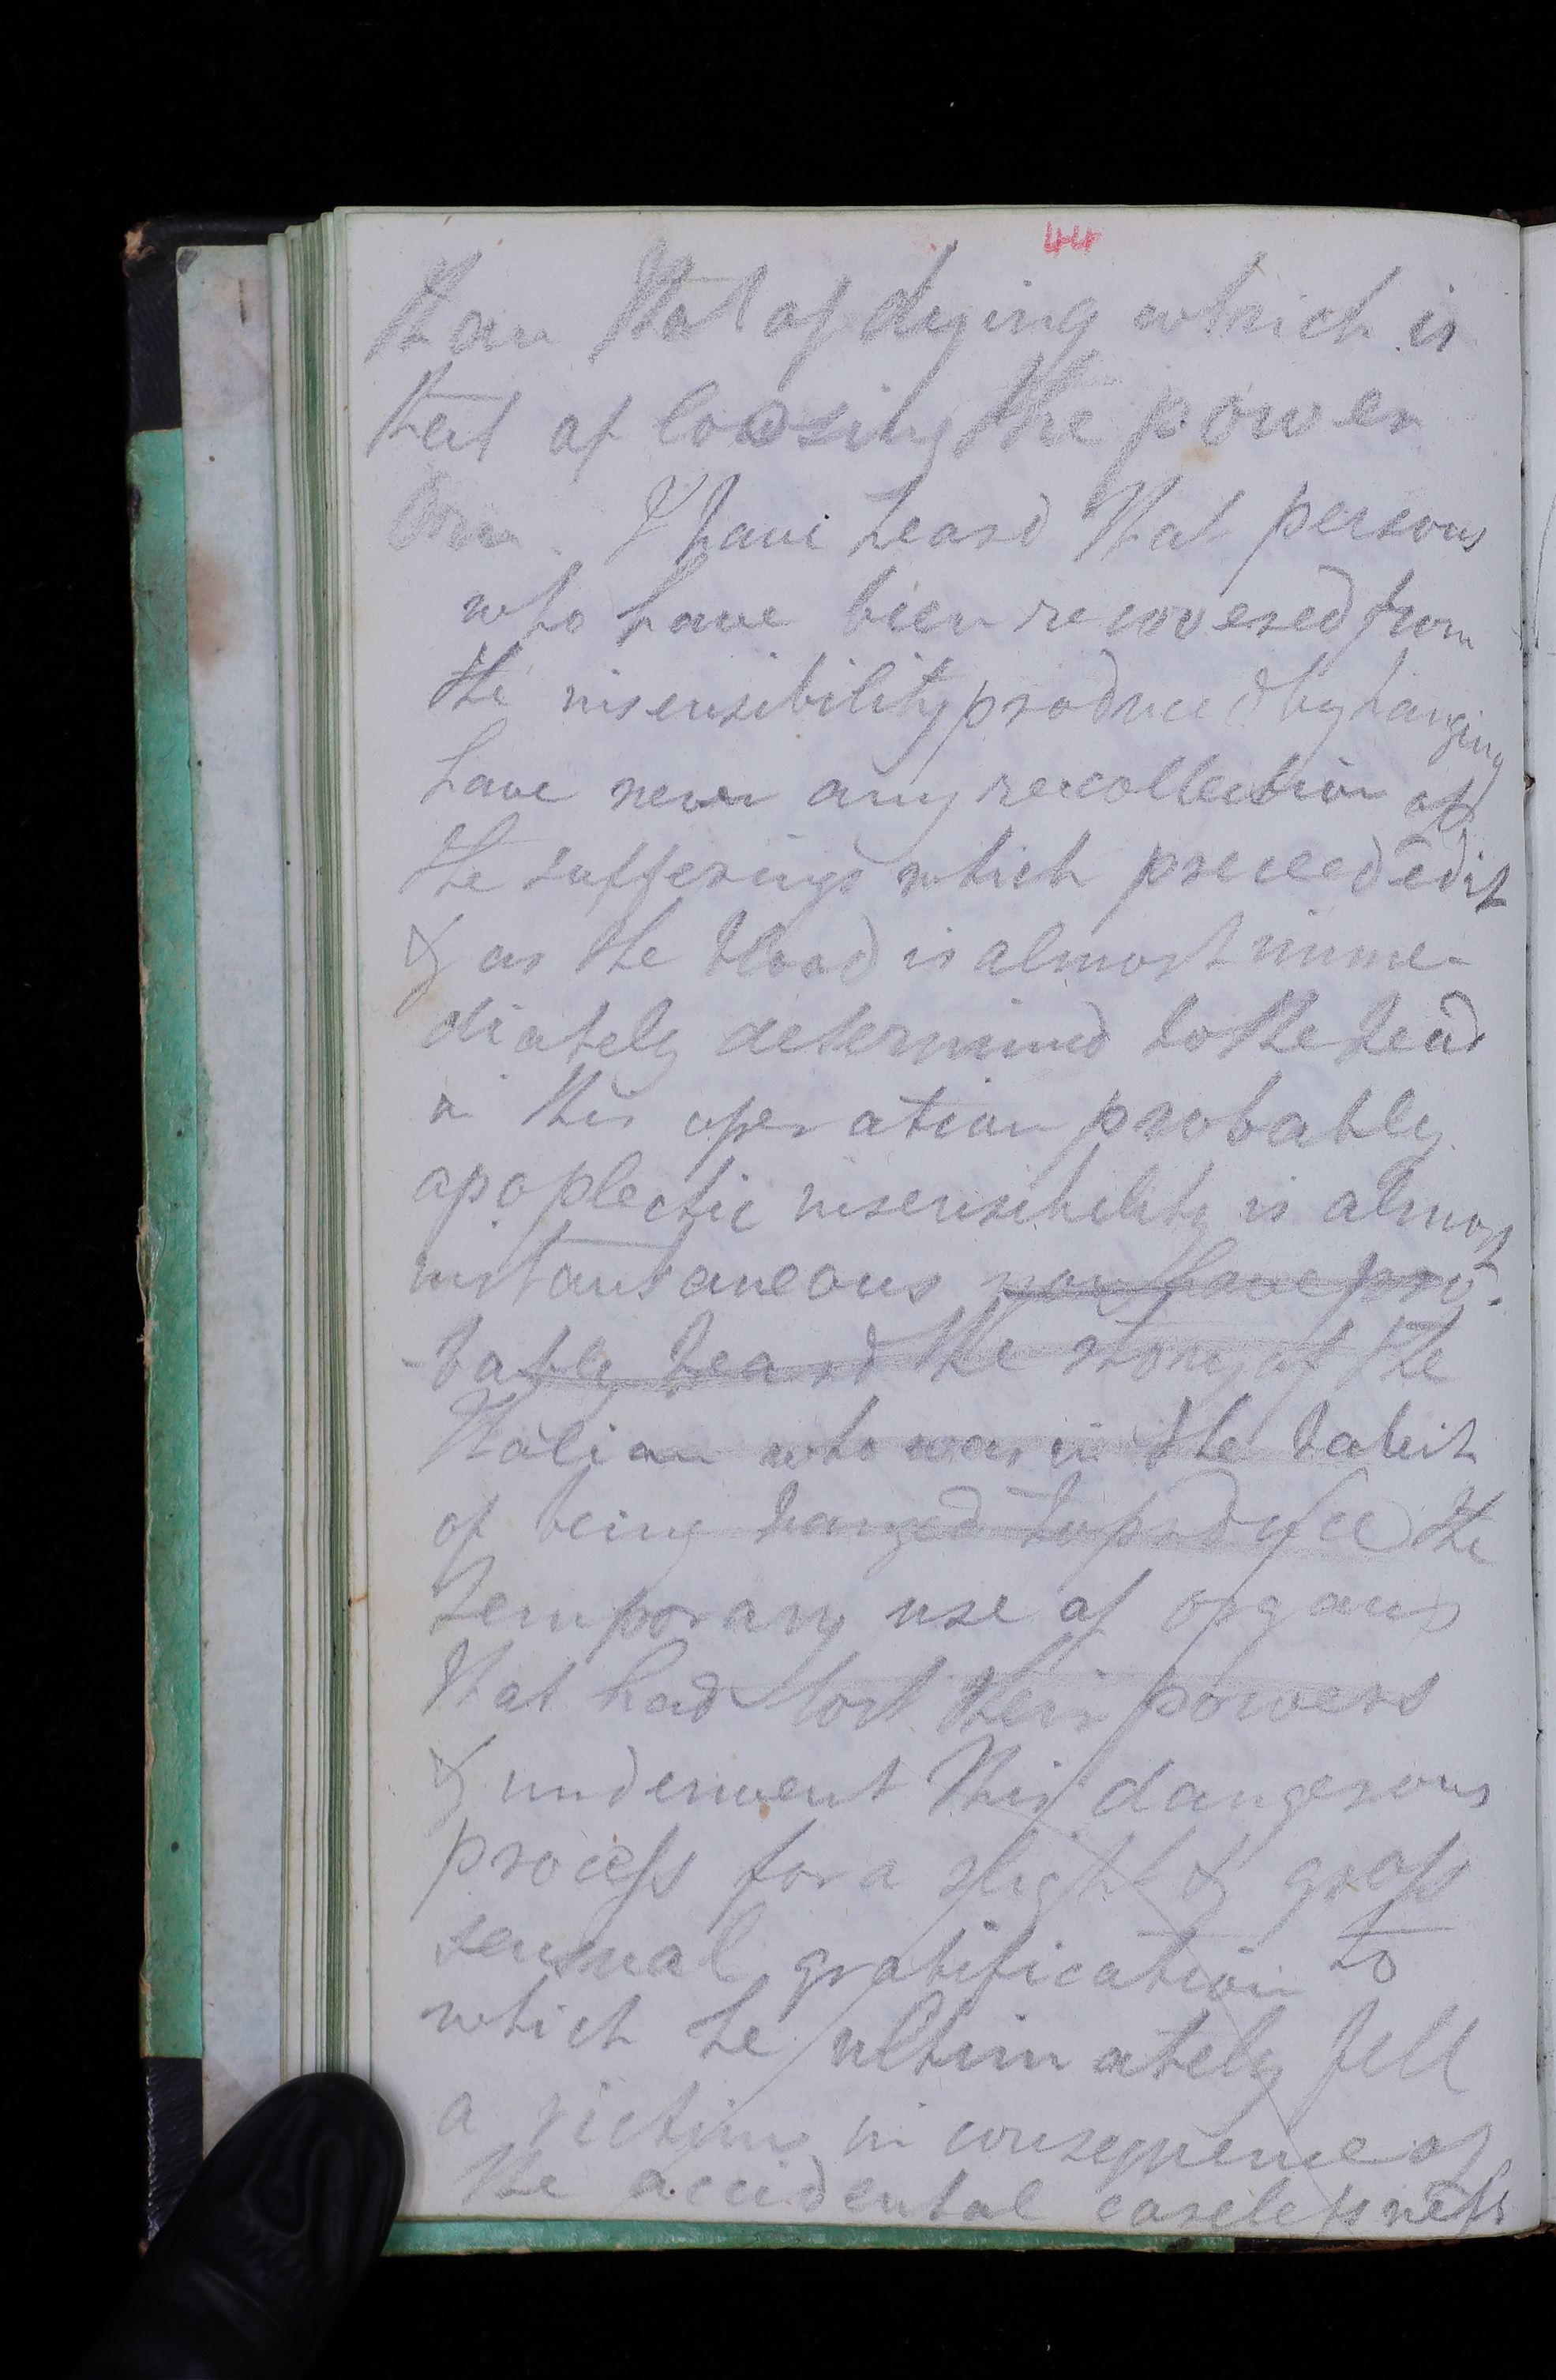 44
than that of dying which is
that of loosing the power
Orn. I have heard that persons
who have been recovered from
the insensibility produced by hanging
have never any recollection of
the sufferings which preceeded it
& as the blood is almost imme-
diately determined to the head
in this operation probably
apoplectic insensibility is almost
instantaneous you have pro-
-bably heard the story of the
Italian who was in the habit
of being hanged to produce the
temporary use of organs
that had lost their powers
& underwent this dangerous
process for a slight & gross
sensual gratification to
which he ultimately fell
a victim in consequence of
the accidental carelessness